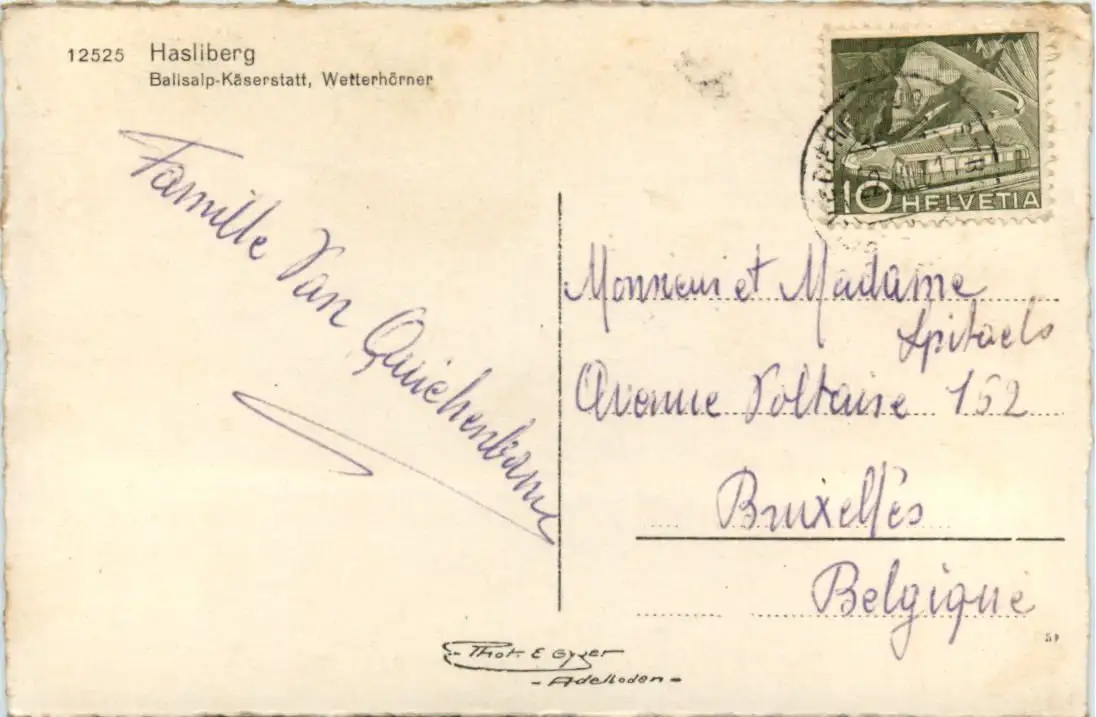 12525 Hasliberg
Balisalp-Käserstatt, Wetterhörner
10 HELVETIA
Famille Van
Monsieur et Madame
Spitaels
Avenue Voltaire 152
Bruxelles
Belgique
Phot. E Gyger
- Adelboden -